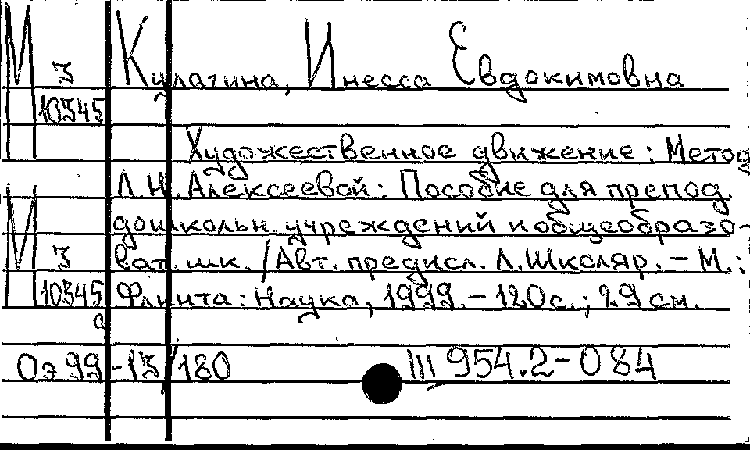 М З Кулагина, Инесса Евдокимовна
10345
Художественное движение: Метод
Л.Н. Алексеевой: Пособие для препод.
М дошкольн. учреждений и общеобразо-
З ват. шк. / Авт. предисл. Л. Школяр. – М.:
10345 Флинта: Наука, 1999. – 120с.; 29 см.
Оэ 99-13/180 III 954.2-084